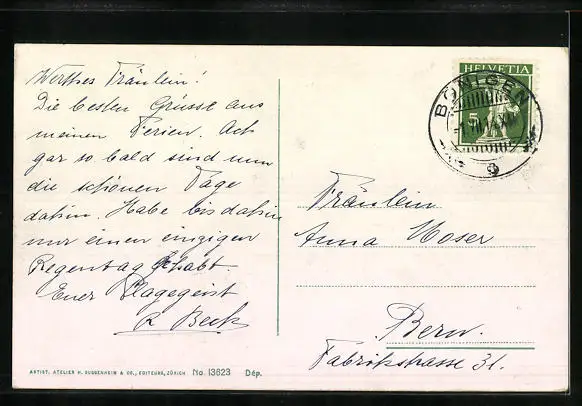 Werthes Fräulein!
Die besten Grüsse aus
meinen Ferien. Ach
gar so bald sind nun
die schönen Tage
dahin. Habe bis dahin
nur einen einzigen
Regentag gehabt.
Euer Plagegeist
R Beck
HELVETIA
5
BÖNIGEN
Fräulein
Anna Moser
Bern.
Fabrikstrasse 31.
ARTIST. ATELIER H. GUGGENHEIM & CO., EDITEURS, ZÜRICH No. 13623 Dép.